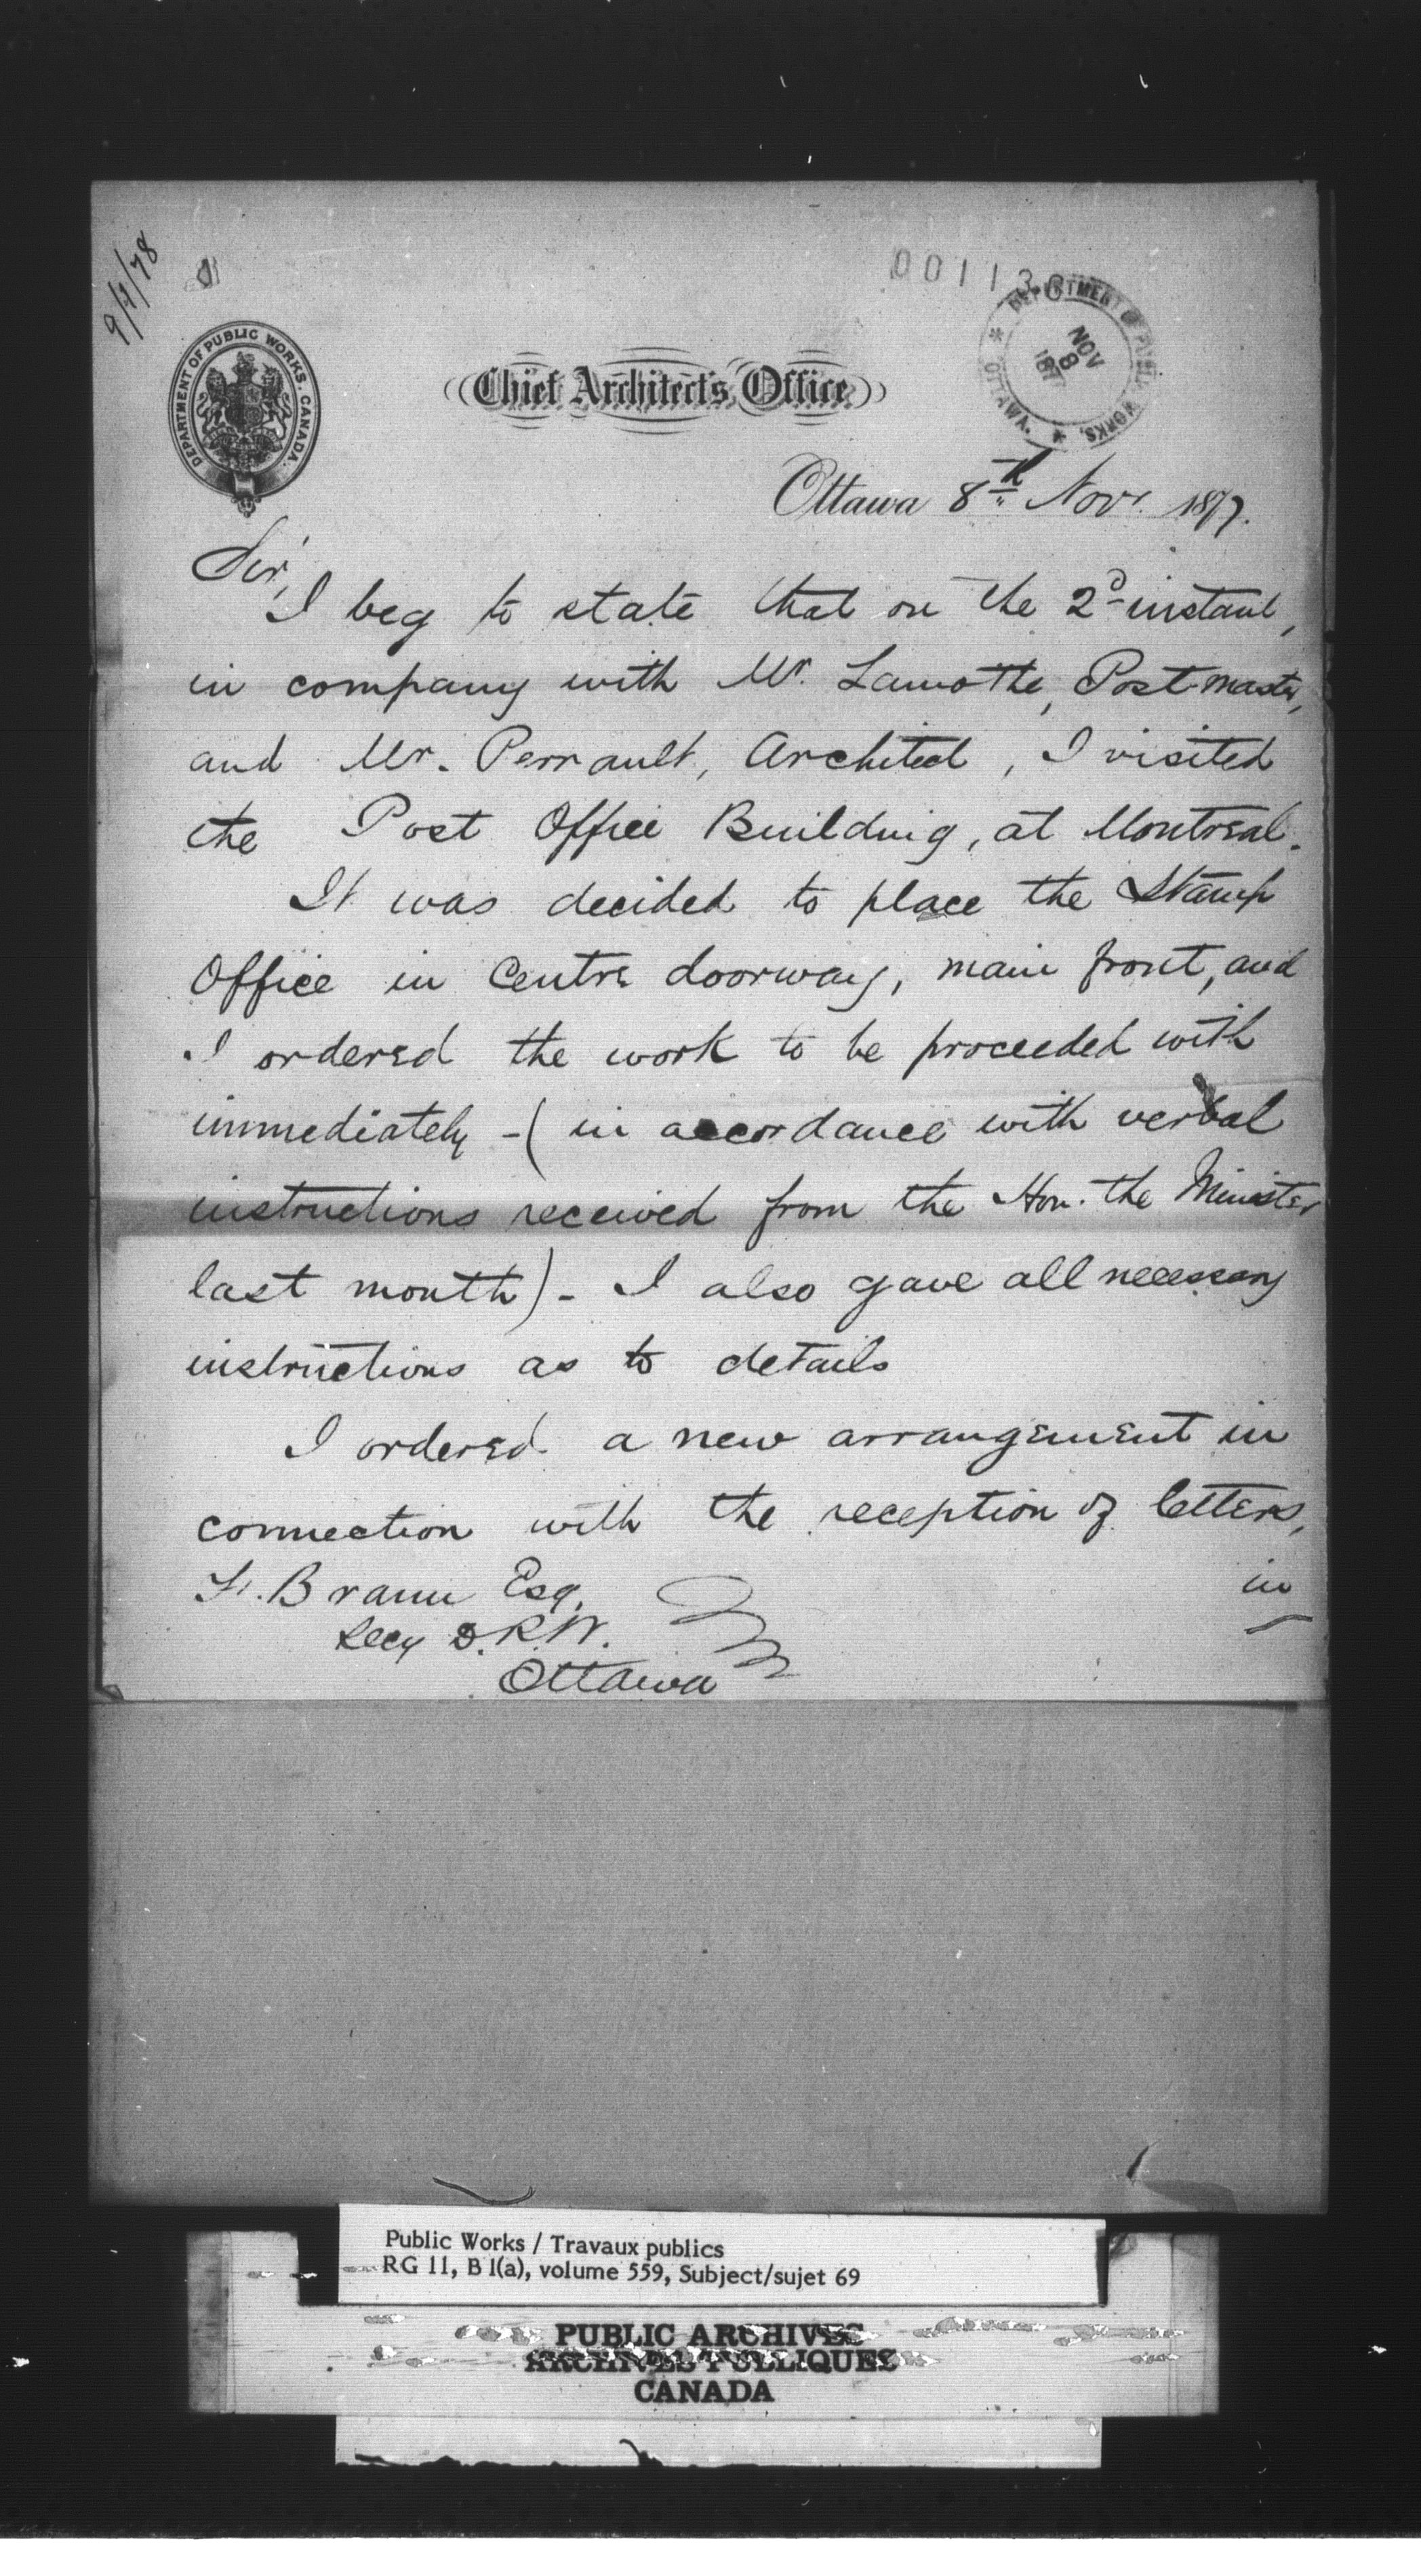 9/4/78
001130
DEPARTMENT OF PUBLIC WORKS. CANADA.
DEPARTMENT OF PUBLIC WORKS, OTTAWA.
NOV
8
187
Chief Architect's Office
Ottawa 8th Novr. 1877.
Sir,
I beg to state that on the 2d instant,
in company with Mr. Lamothe, Postmaster,
and Mr. Perrault, Architect, I visited
the Post Office Building, at Montreal.
It was decided to place the Stamp
Office in Centre doorway, main front, and
I ordered the work to be proceeded with
immediately - (in accordance with verbal
instructions received from the Hon. the Minister
last month) - I also gave all necessary
instructions as to details
I ordered a new arrangement in
connection with the reception of letters,
in
F. Braun Esq.
Secy D.P.W.
Ottawa
Public Works / Travaux publics
RG 11, B 1(a), volume 559, Subject/sujet 69
PUBLIC ARCHIVES
ARCHIVES PUBLIQUES
CANADA